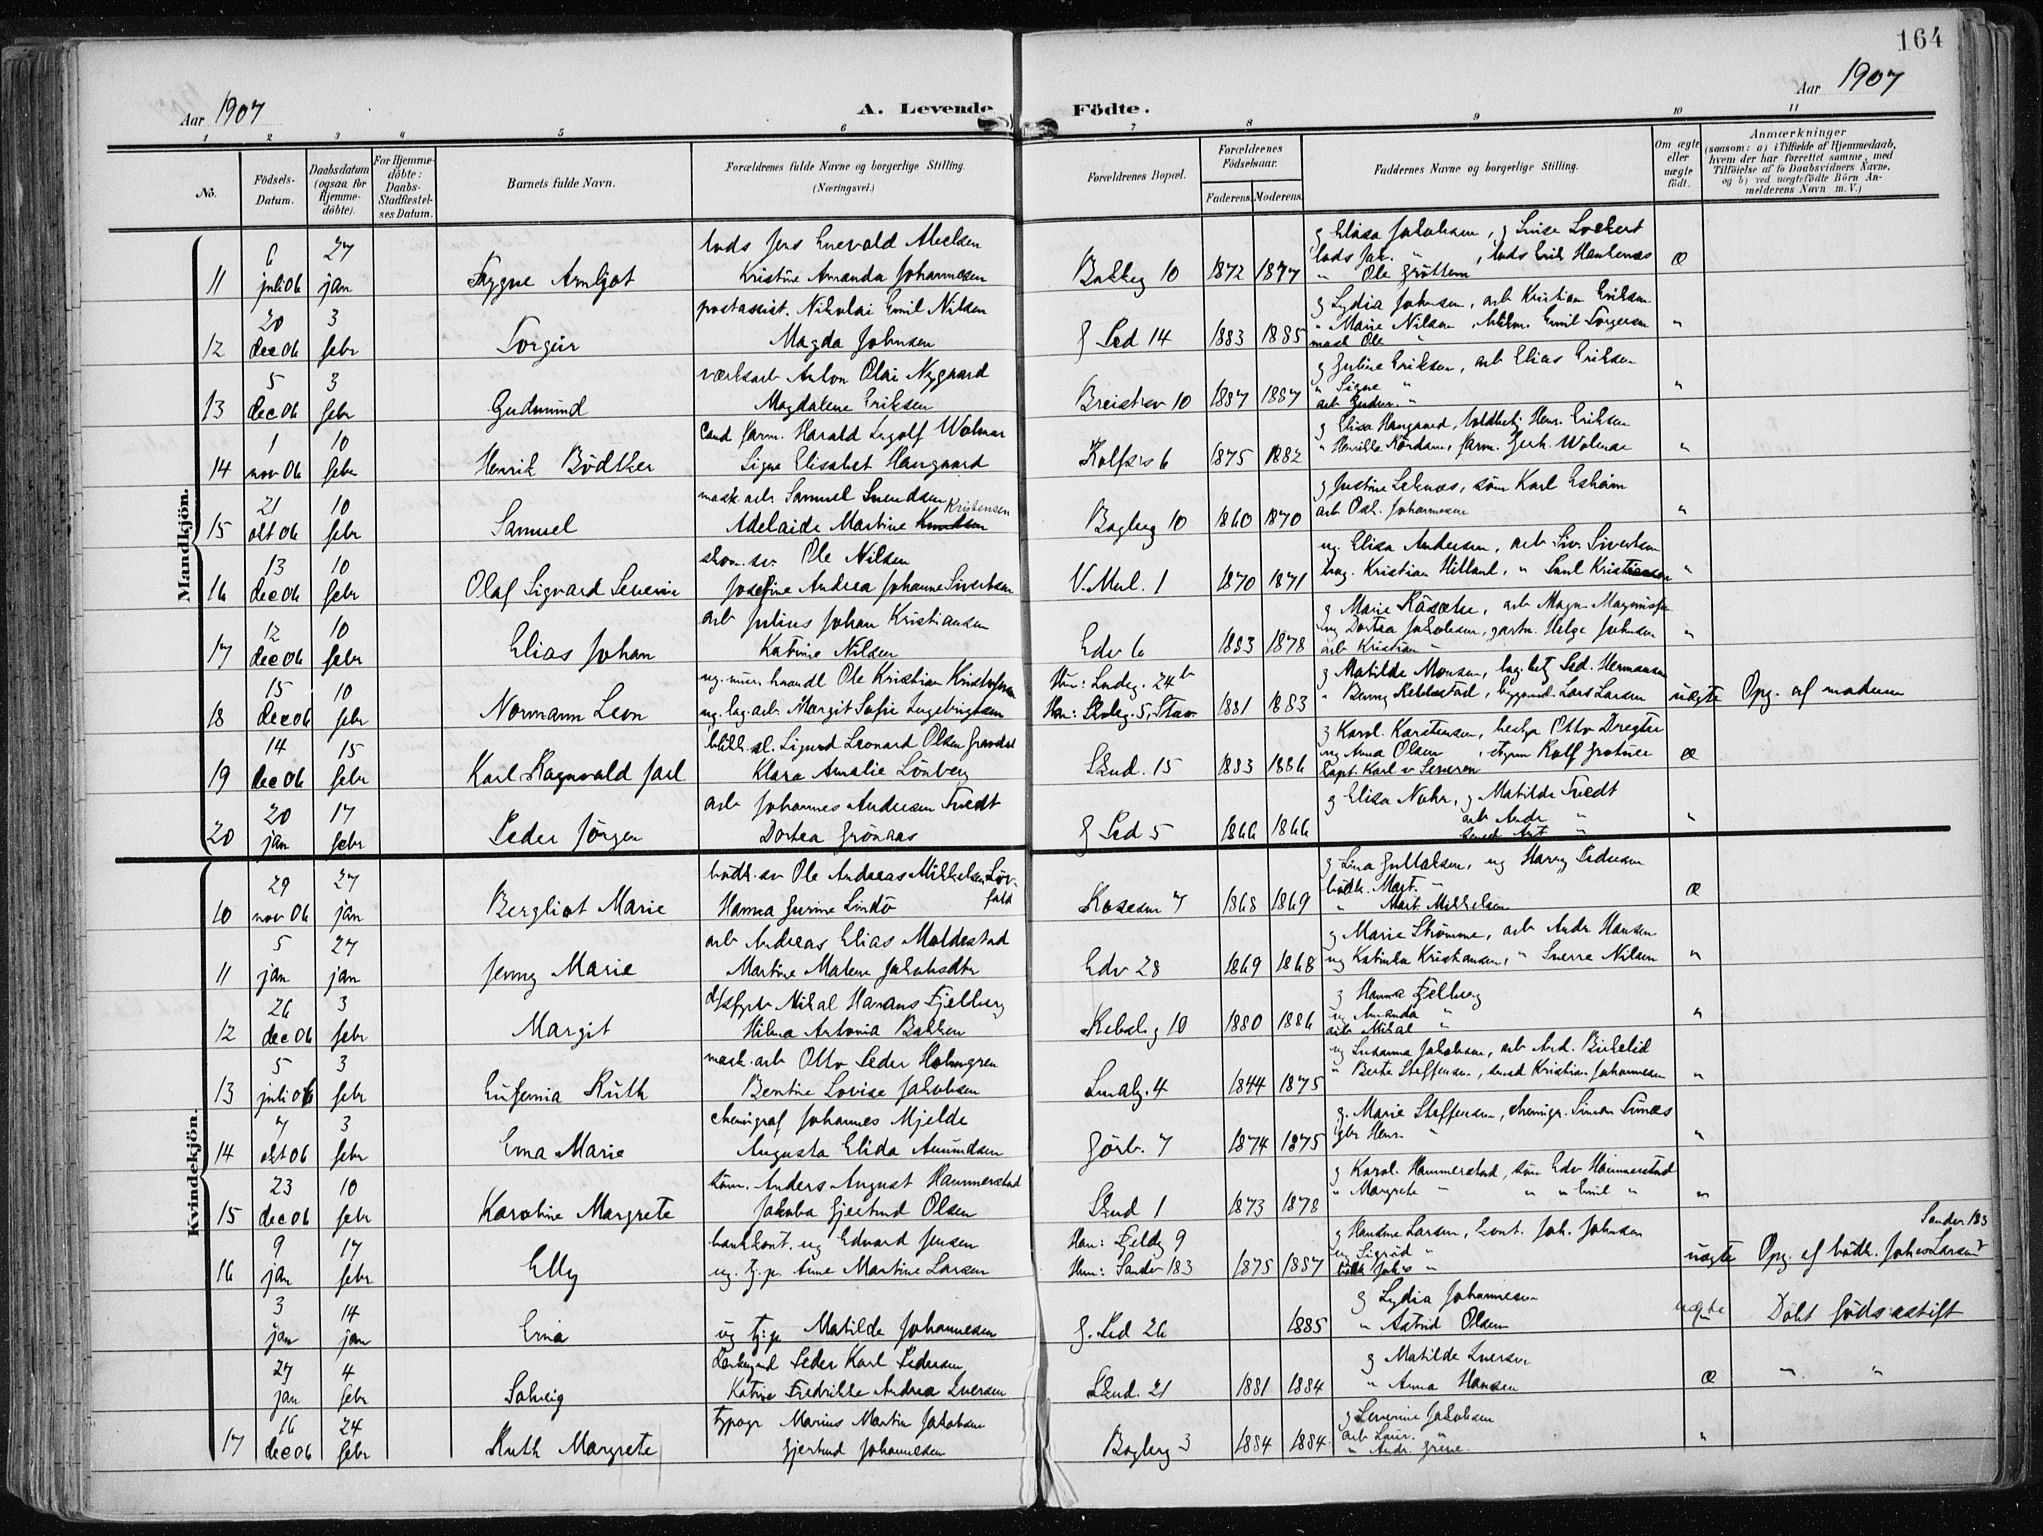 164
Aar 1907
A. Levende Födte.
Aar 1907
1 2 3 4 5 6 7 8 9 10 11
No.
Födsels-Datum.
Daabsdatum (ogsaa for Hjemme-döbte).
For Hjemme-döbte: Daabs-Stadfæstel-ses Datum.
Barnets fulde Navn.
Forældrenes fulde Navne og borgerlige Stilling. (Næringsvei.)
Forældrenes Bopæl.
Forældrenes Födselsaar.
Faderens. Moderens.
Faddernes Navne og borgerlige Stilling.
Om ægte eller uægte födt.
Anmærkninger (saasom: a) i Tilfælde af Hjemmedaab, hvem der har forrettet samme, med Tilföielse af to Daabsvidners Navne, og b) ved uægtefödte Börn Anmelderens Navn m. V.)
Mandkjön.
11 6 juli 06 27 jan Trygve Arnljot
lods Jens Enevald Abelsen
Kristine Amanda Johannesen
Bakkeg 10 1872 1877
g Elisa Jakobsen, g Lovise Lockert
" Ole Gröttem
æ
12 20 dec 06 3 febr Torgeir
postassist. Nikolai Emil Nilsen
Magda Johnsen
G Sed 14 1883 1885
g Lydia Johnsen, arb Kristian Eriksen
" Marie Nilsen, Emil Torgersen
mask Ole "
"
13 5 dec 06 3 febr Gudmund
værksarb Anton Olai Nygaard
Magdalene Eriksen
Breistrv 10 1887 1887
g Gurine Eriksen, arb Elias Eriksen
" Signe "
"
14 1 nov 06 10 febr Henrik Bödtker
Cand farm. Harald Ingolf Wolmar
Signe Elisabet Haugaard
Kolfss 6 1875 1882
g Elisa Haugaard, Henr. Eriksen
"
15 21 okt 06 10 febr Samuel
mask. arb Samuel Svendsen
Adelaide Martine Kristensen
Bagberg 10 1860 1870
g Justine Seknæs, töm Karl Eskeim
arb Osk. Johannesen
"
16 13 dec 06 10 febr Olaf Sigvard Severin
skom. sv. Ole Nilsen
Josefine Andrea Johanne Sivertsen
V. Mul. 1 1870 1871
ug. Elisa Andersen, arb Siv. Sivertsen
bag. Kristian Hilland, " Saml Kristiansen
"
17 12 dec 06 10 febr Elias Johan
arb Julius Johan Kristiansen
Katrine Nilsen
Edv 6 1883 1878
ug Dortea Jakobsen, gartn. Helge Johnsen
arb Kristian "
"
18 15 dec 06 10 febr Normann Leon
ug. mur. haandl Ole Kristian Kristofersen
ug. lag. arb. Margit Sofie Ingebrigtsen
1881 1883
g Matilde Monsen, bag. betj Sed. Hermansen
" Lars Larsen
uægte Opg. af moderen
19 14 dec 06 15 febr Karl Ragnvald Jarl
blikk. sl. Sigurd Leonard Olsen
Klara Amalie Lönberg
Skud. 15 1883 1886
g Karol. Karstensen, Otto Dregtse
ug Anna Olsen
Kapt. Karl v Severen
æ
20 20 jan 17 febr Peder Jörgen
arb Johannes Andersen Tvedt
Dortea Grönaas
G Sed 5 1866 1866
g Elisa Nohr, g Matilde Tvedt
arb Andr "
"
Kvindekjön.
10 29 nov 06 27 jan Bergliot Marie
bödk. sv Ole Andreas Mikkelsen Löv-fald
Hanna Gurine Lindö
Rosesm 7 1868 1869
g Lina Gullaksen, ug Harry Pedersen
bödk. Mart. "
" Mart. Mikkelsen
æ
11 5 jan 27 jan Jenny Marie
arb Andreas Elias Moldestad
Martine Malene Jakobsdtr
Edv 28 1869 1868
g Marie Strömme, arb Andr Hansen
ug Katinka Kristiansen, " Sverre Nilsen
"
12 26 dec 06 3 febr Margit
Mikal Havans Fjelberg
Hilma Antonia Bakken
Rebslg 10 1880 1886
g Hanna Fjelberg
ug Amanda "
arb Mikal "
"
13 5 juli 06 3 febr Eufemia Ruth
mask. arb Otto Peder Holmgren
Bentine Lovise Jakobsen
Smalg. 4 1844 1875
ug Susanna Jakobsen, arb Ard. Birkelid
" Berte Steffensen, Kristian Johannesen
"
14 7 okt 06 3 febr Erna Marie
chemigraf Johannes Mjelde
Augusta Elida Amundsen
Görb. 7 1874 1875
g. Marie Steffensen, chemigr. Simon Tunæs
gbr Henr. "
"
15 23 dec 06 10 febr Karoline Margrete
töm. Anders August Hammerstad
Jakoba Gjertrud Olsen
Skud 1 1873 1878
g Karol. Hammerstad, töm Edv Hammerstad
" Margrete " " " Emil "
"
16 9 jan 17 febr Elly
bankkont. ug Edvard Jensen
ug. tj. p. Anne Martine Larsen
Han: Fjeldg 9
Hun: Sandv 183
1875 1887
g Hansine Larsen, kont. Joh. Johnsen
ug Sigrid "
bödk Johs "
uægte Opg. af bödk. Johs Larsen Sandv. 183
3 jan 14 jan Erna
ug tj. p. Matilde Johannesen
G. Sed 26 1885
g Lydia Johannesen
" Astrid Olsen
uægte Döbt födselsstift
27 jan 4 febr Solveig
Peder Karl Pedersen
Katrine Fredrikke Andrea Iversen
Skud. 21 1881 1884
g Matilde Iversen
" Anna Hansen
æ " "
17 16 dec 06 24 febr Ruth Margrete
typogr Marius Martin Jakobsen
Gjertrud Johannesen
Bagberg 3 1884 1884
g Severine Jakobsen
arb Laur. "
" Andr. Greve
"